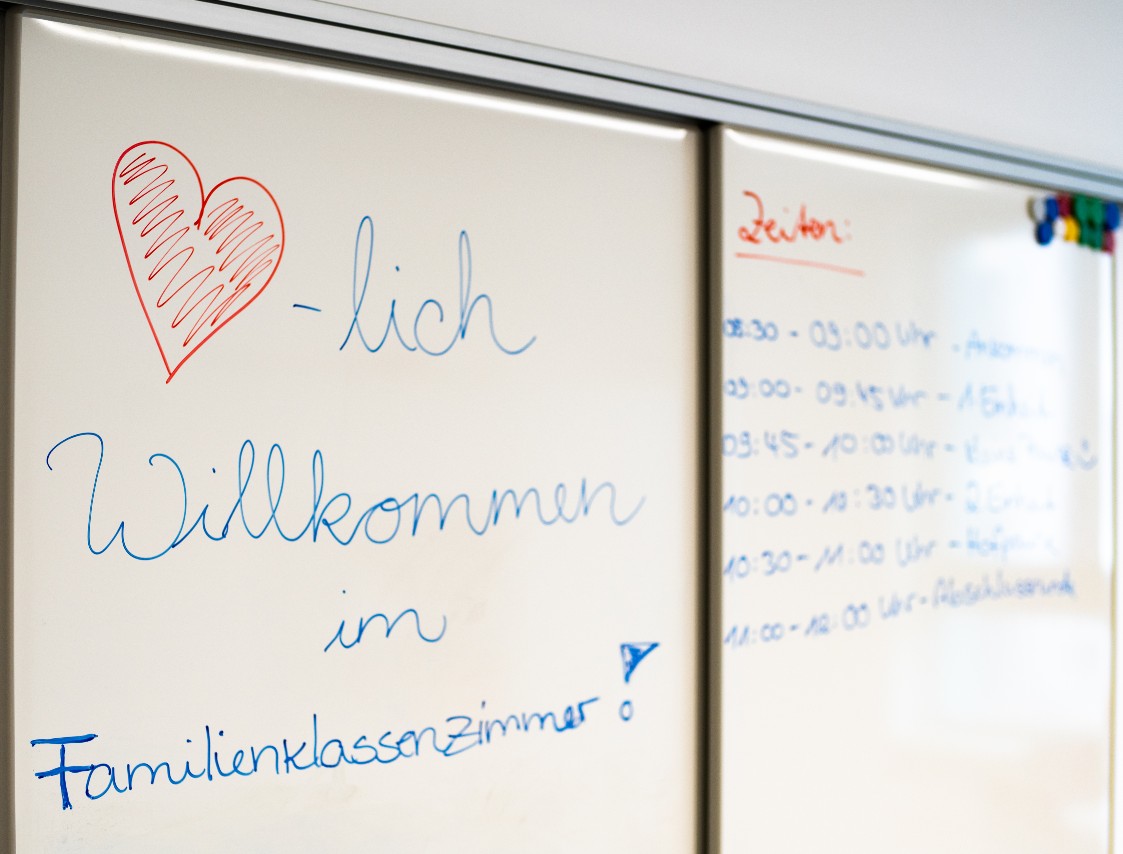 -lich
Willkommen
im
Familienklassenzimmer!
Zeiten:
08:30 - 09:00 Uhr - Ankommen
09:00 - 09:45 Uhr - 1. Einheit
09:45 - 10:00 Uhr - Kleine Pause
10:00 - 10:30 Uhr - 2. Einheit
10:30 - 11:00 Uhr - Hofpause
11:00 - 12:00 Uhr - Abschlussrunde